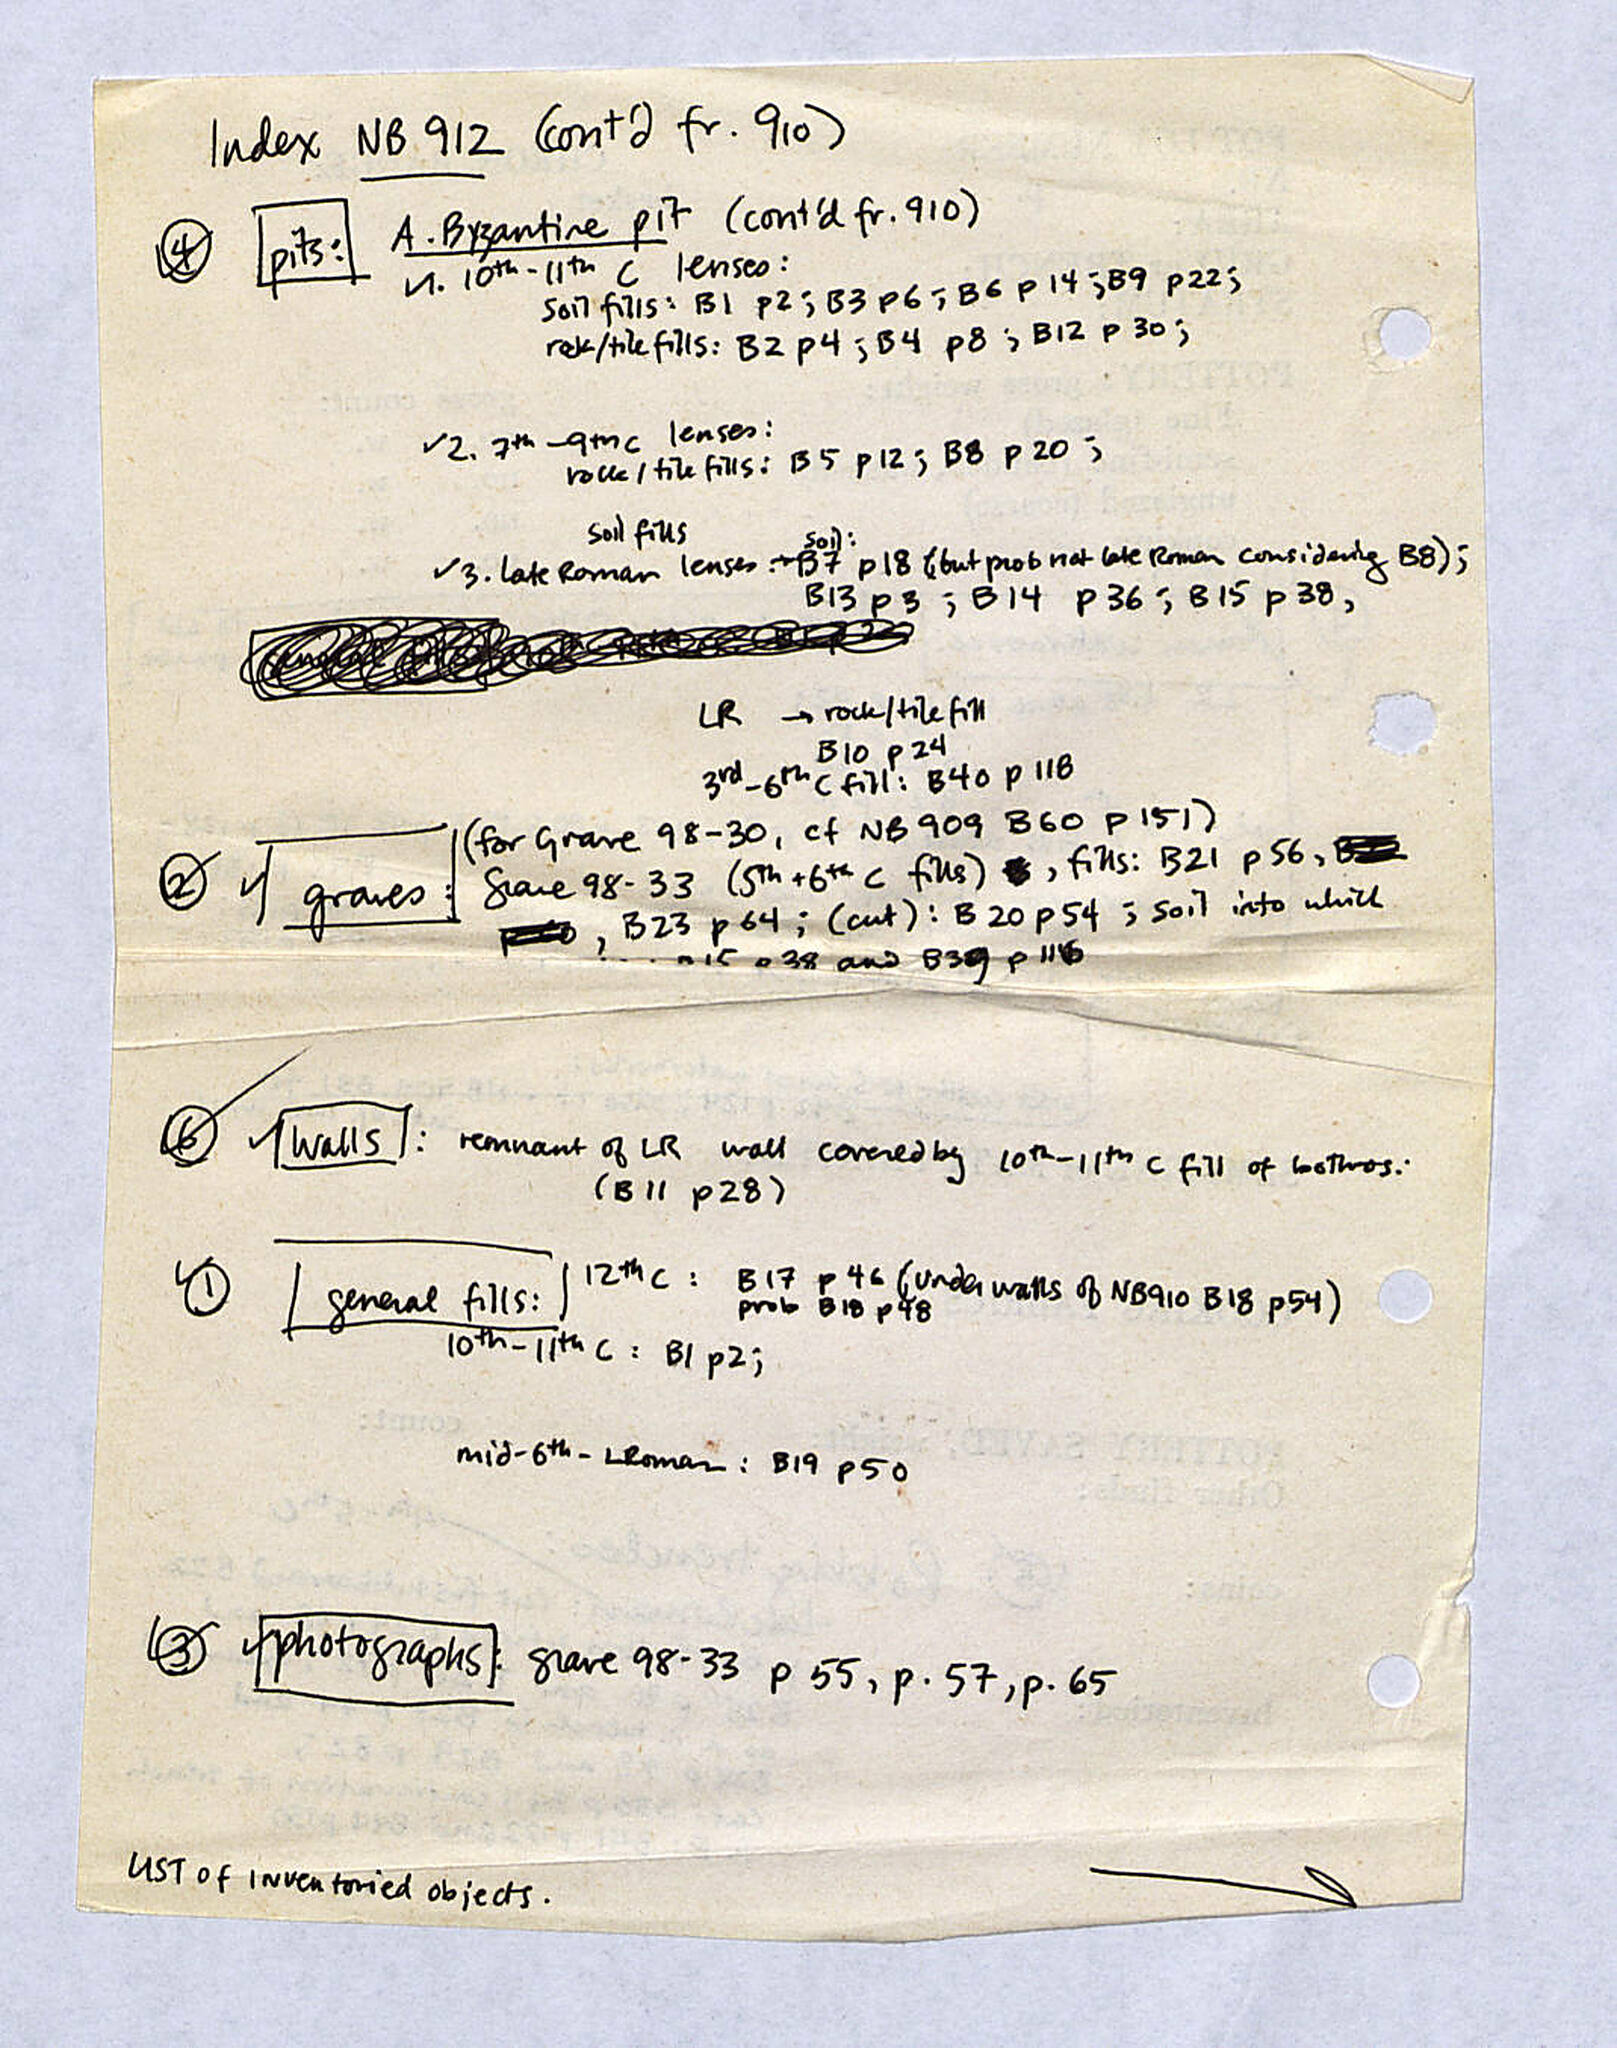 Index NB 912 (cont'd fr. 910)
4 pits: A. Byzantine pit (cont'd fr. 910)
1. 10th-11th C lenses:
soil fills: B1 p2; B3 p6; B6 p14; B9 p22;
rock/tile fills: B2 p4; B4 p8; B12 p30;
2. 7th-9th C lenses:
rock/tile fills: B5 p12; B8 p20;
soil fills soil:
3. late Roman lenses: B7 p18 (but prob not late Roman considering B8);
B13 p3; B14 p36; B15 p38,
LR → rock/tile fill
B10 p24
3rd-6th C fill: B40 p118
(for Grave 98-30, cf NB 909 B60 p151)
2 graves: Grave 98-33 (5th + 6th C fills), fills: B21 p56,
, B23 p64; (cut): B20 p54; soil into which
B15 p38 and B39 p116
6 Walls: remnant of LR wall covered by 10th-11th C fill of bothros.
(B11 p28)
1 general fills: 12th C: B17 p46 (under walls of NB910 B18 p54)
prob B18 p48
10th-11th C: B1 p2;
mid-6th-LRoman: B19 p50
3 photographs: grave 98-33 p 55, p. 57, p. 65
LIST of inventoried objects.